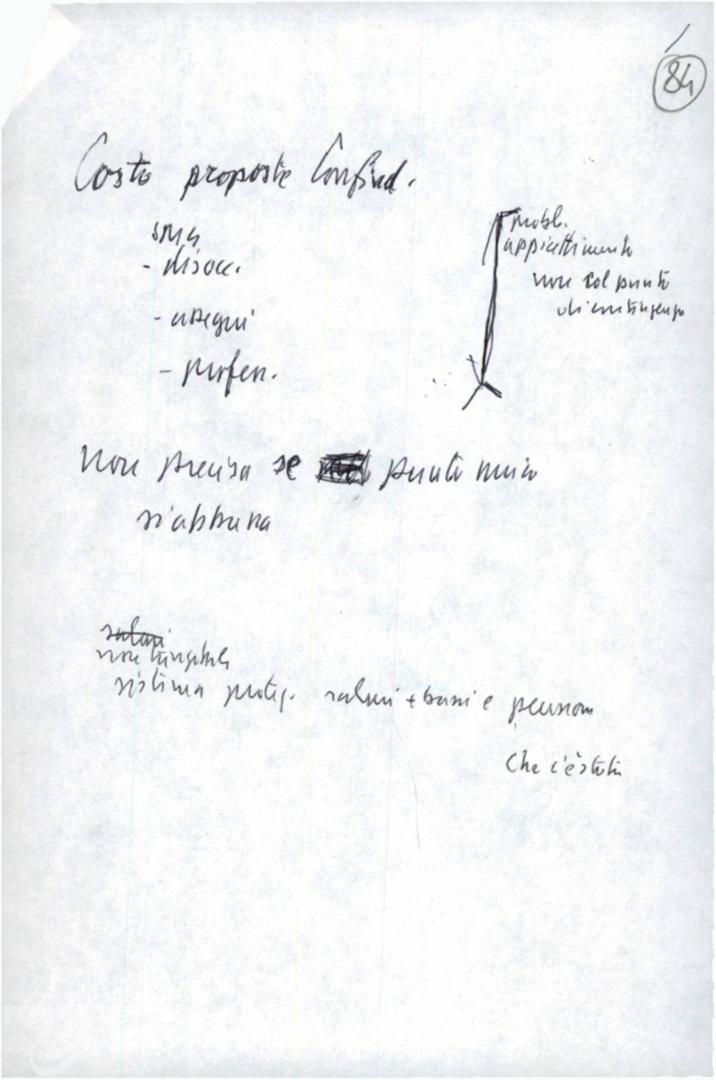 84
Costo proposte Confind.
sma
- disocc.
- assegni
- perfen.
probl.
appiattimento
non sol punto
di contingenza
non precisa se punto unico
si abbuna
salari
non
sistema proteg. salari + bassi e pensioni
che c'è stata